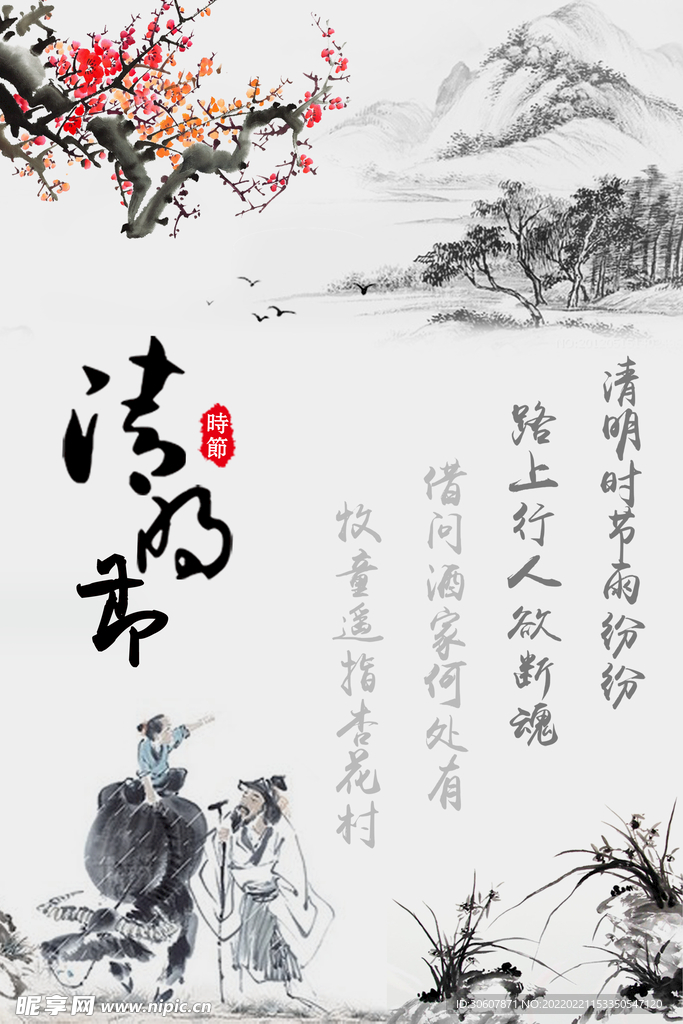 清明
节
時節
清明时节雨纷纷
路上行人欲断魂
借问酒家何处有
牧童遥指杏花村
昵享网 www.nipic.cn
ID:30607871 NO:20220221153350547120